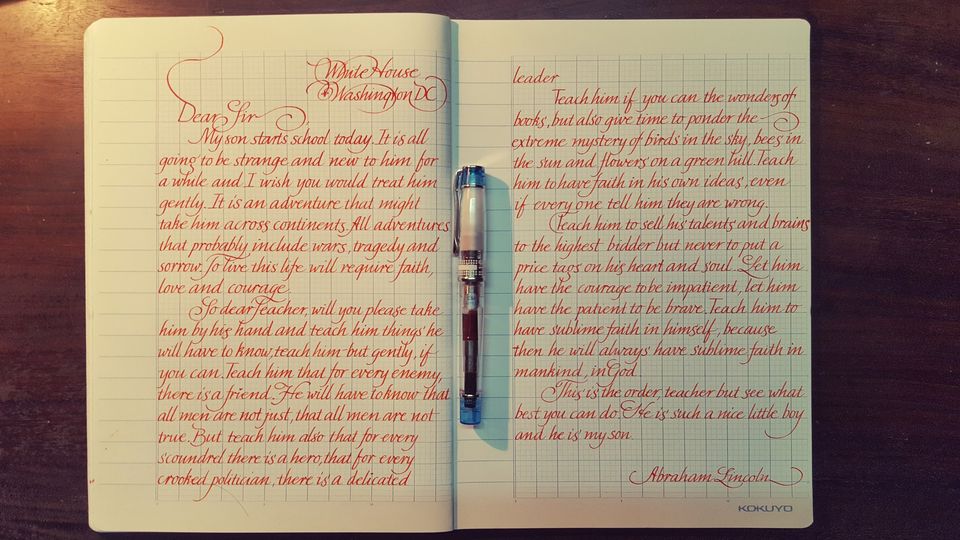 White House
Washington DC
Dear Sir,
My son starts school today. It is all
going to be strange and new to him for
a while and I wish you would treat him
gently. It is an adventure that might
take him across continents. All adventures
that probably include wars, tragedy and
sorrow. To live this life will require faith,
love and courage.
So dear Teacher, will you please take
him by his hand and teach him things he
will have to know, teach him but gently, if
you can. Teach him that for every enemy,
there is a friend. He will have to know that
all men are not just, that all men are not
true. But teach him also that for every
scoundrel there is a hero, that for every
crooked politician, there is a delicated
leader
Teach him if you can the wonders of
books, but also give time to ponder the
extreme mystery of birds in the sky, bees in
the sun and flowers on a green hill. Teach
him to have faith in his own ideas, even
if every one tell him they are wrong.
Teach him to sell his talents and brains
to the highest bidder but never to put a
price tags on his heart and soul. Let him
have the courage to be impatient, let him
have the patient to be brave. Teach him to
have sublime faith in himself, because
then he will always have sublime faith in
mankind, in God.
This is the order, teacher but see what
best you can do. He is such a nice little boy
and he is my son.
Abraham Lincoln
KOKUYO